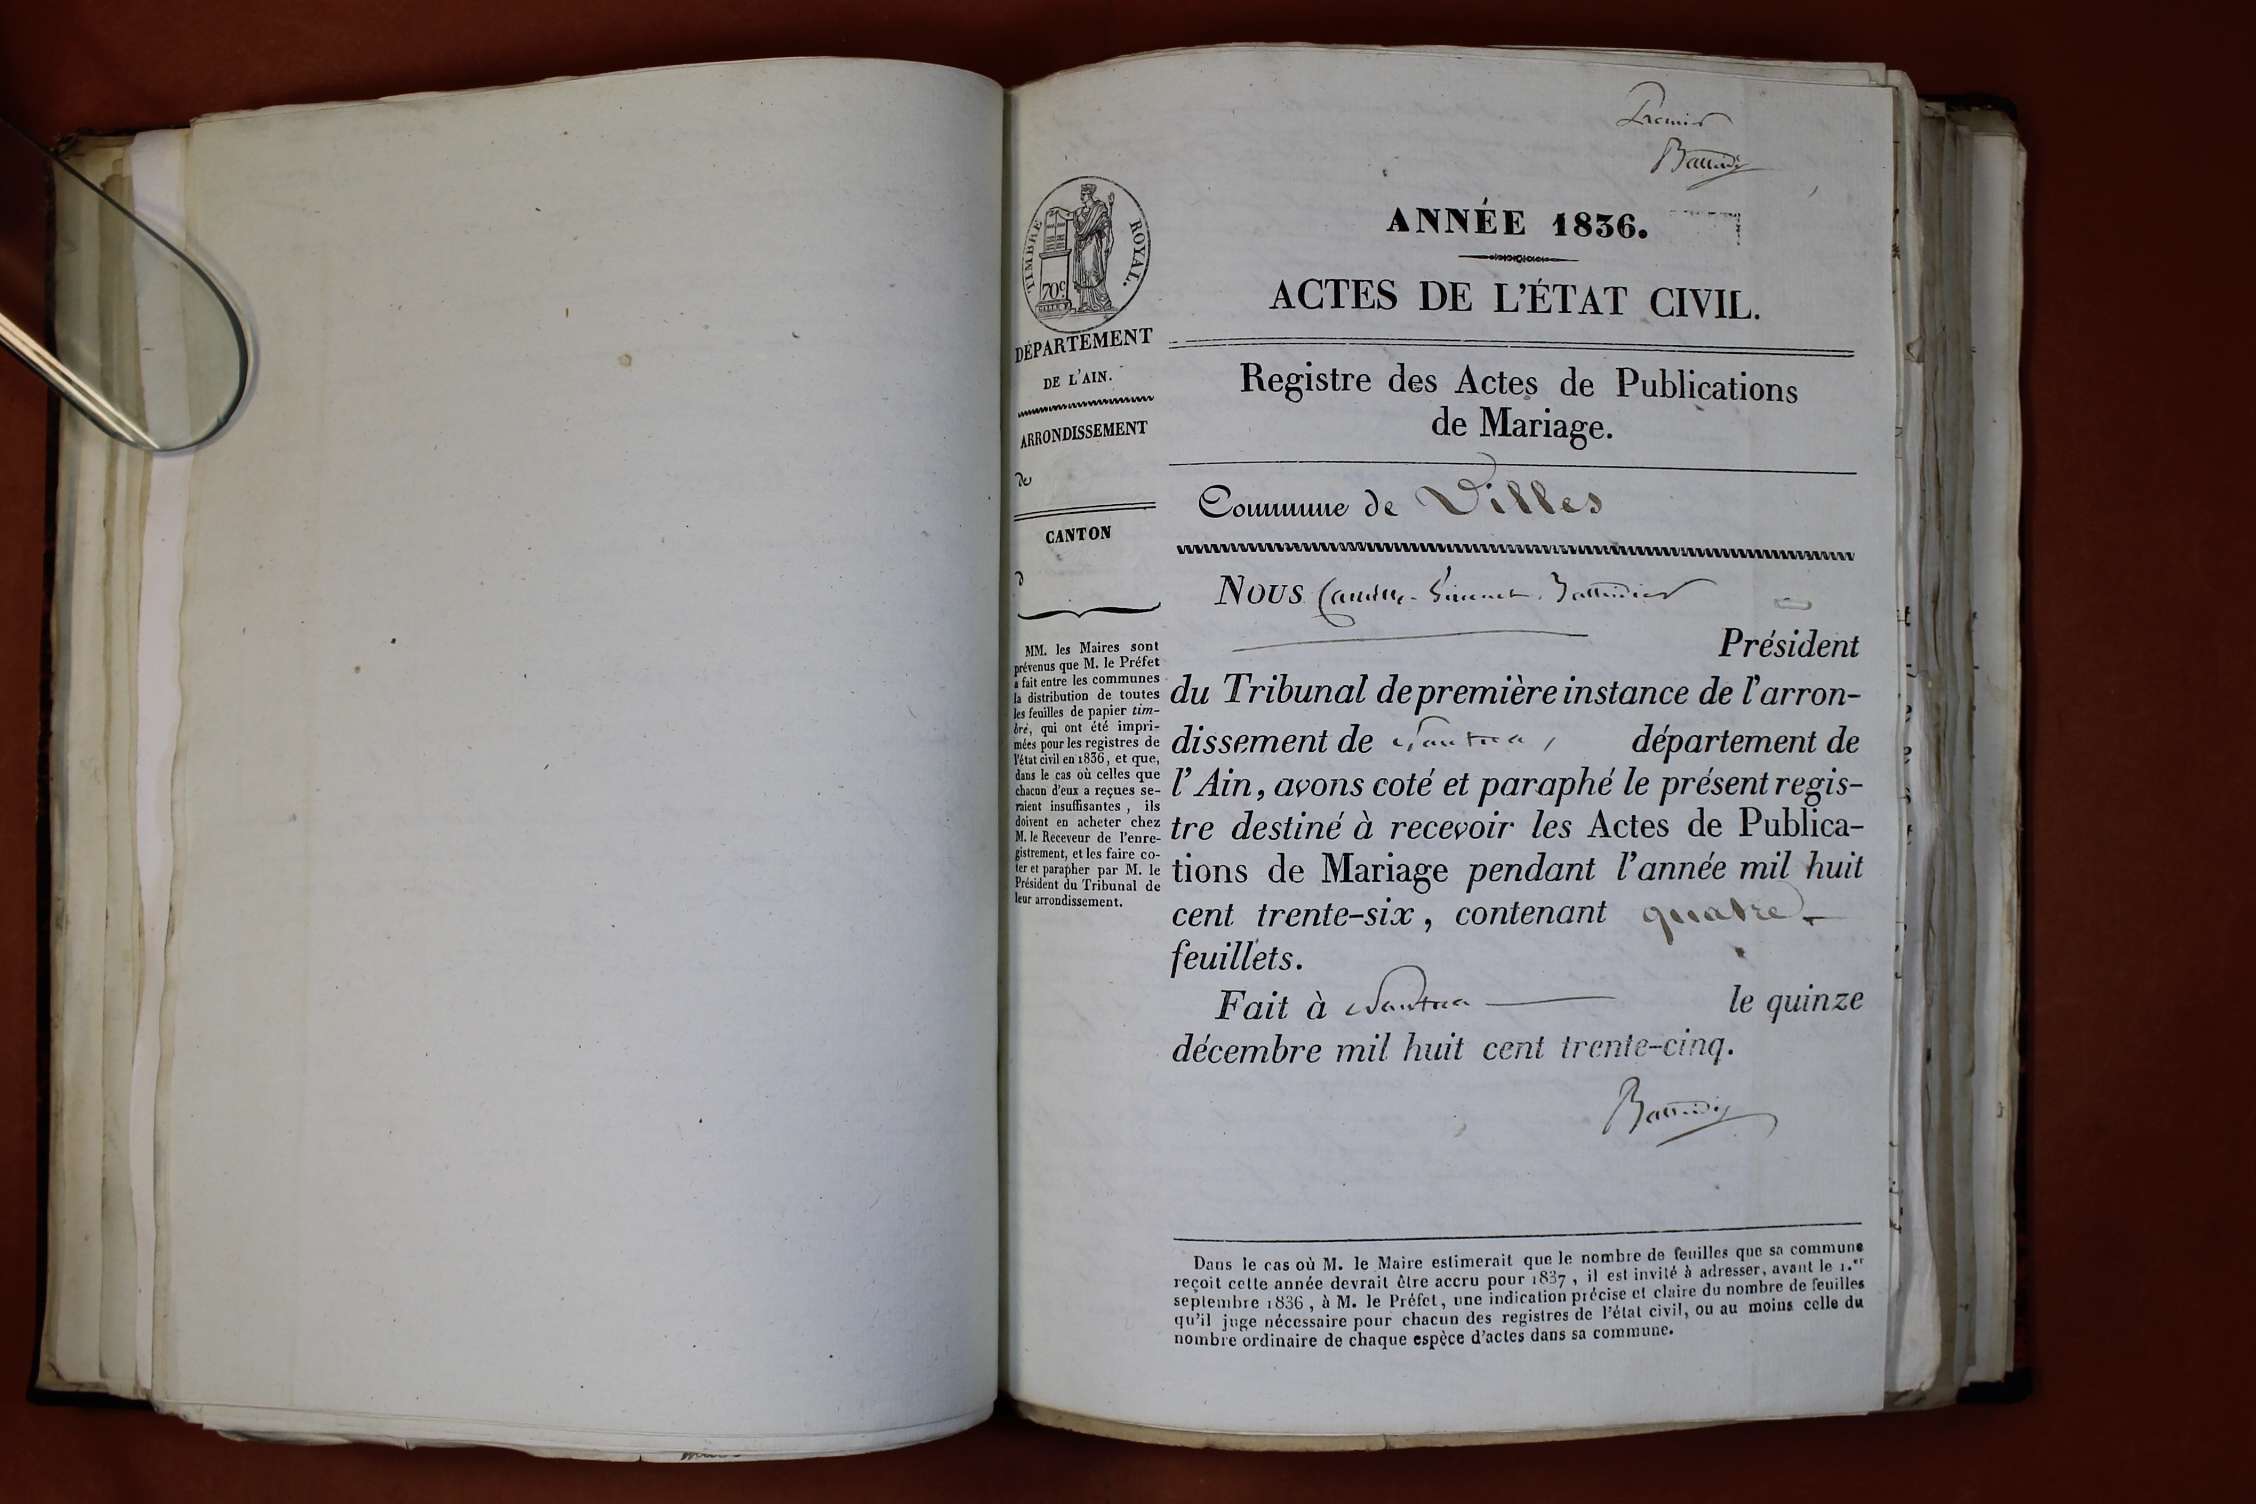 Premier
TIMBRE ROYAL.
70c
DÉPARTEMENT
DE L'AIN.
ARRONDISSEMENT
de
CANTON
d
MM. les Maires sont
prévenus que M. le Préfet
a fait entre les communes
la distribution de toutes
les feuilles de papier tim-
bré, qui ont été impri-
mées pour les registres de
l'état civil en 1836, et que,
dans le cas où celles que
chacun d'eux a reçues se-
raient insuffisantes, ils
doivent en acheter chez
M. le Receveur de l'enre-
gistrement, et les faire co-
ter et parapher par M. le
Président du Tribunal de
leur arrondissement.
ANNÉE 1836.
ACTES DE L'ÉTAT CIVIL.
Registre des Actes de Publications
de Mariage.
Commune de Villes
NOUS Camille
Président
du Tribunal de première instance de l'arron-
dissement de Nantua, département de
l'Ain, avons coté et paraphé le présent regis-
tre destiné à recevoir les Actes de Publica-
tions de Mariage pendant l'année mil huit
cent trente-six, contenant quatre
feuillets.
Fait à Nantua le quinze
décembre mil huit cent trente-cinq.
Dans le cas où M. le Maire estimerait que le nombre de feuilles que sa commune
reçoit cette année devrait être accru pour 1837, il est invité à adresser, avant le 1.er
septembre 1836, à M. le Préfet, une indication précise et claire du nombre de feuilles
qu'il juge nécessaire pour chacun des registres de l'état civil, ou au moins celle du
nombre ordinaire de chaque espèce d'actes dans sa commune.